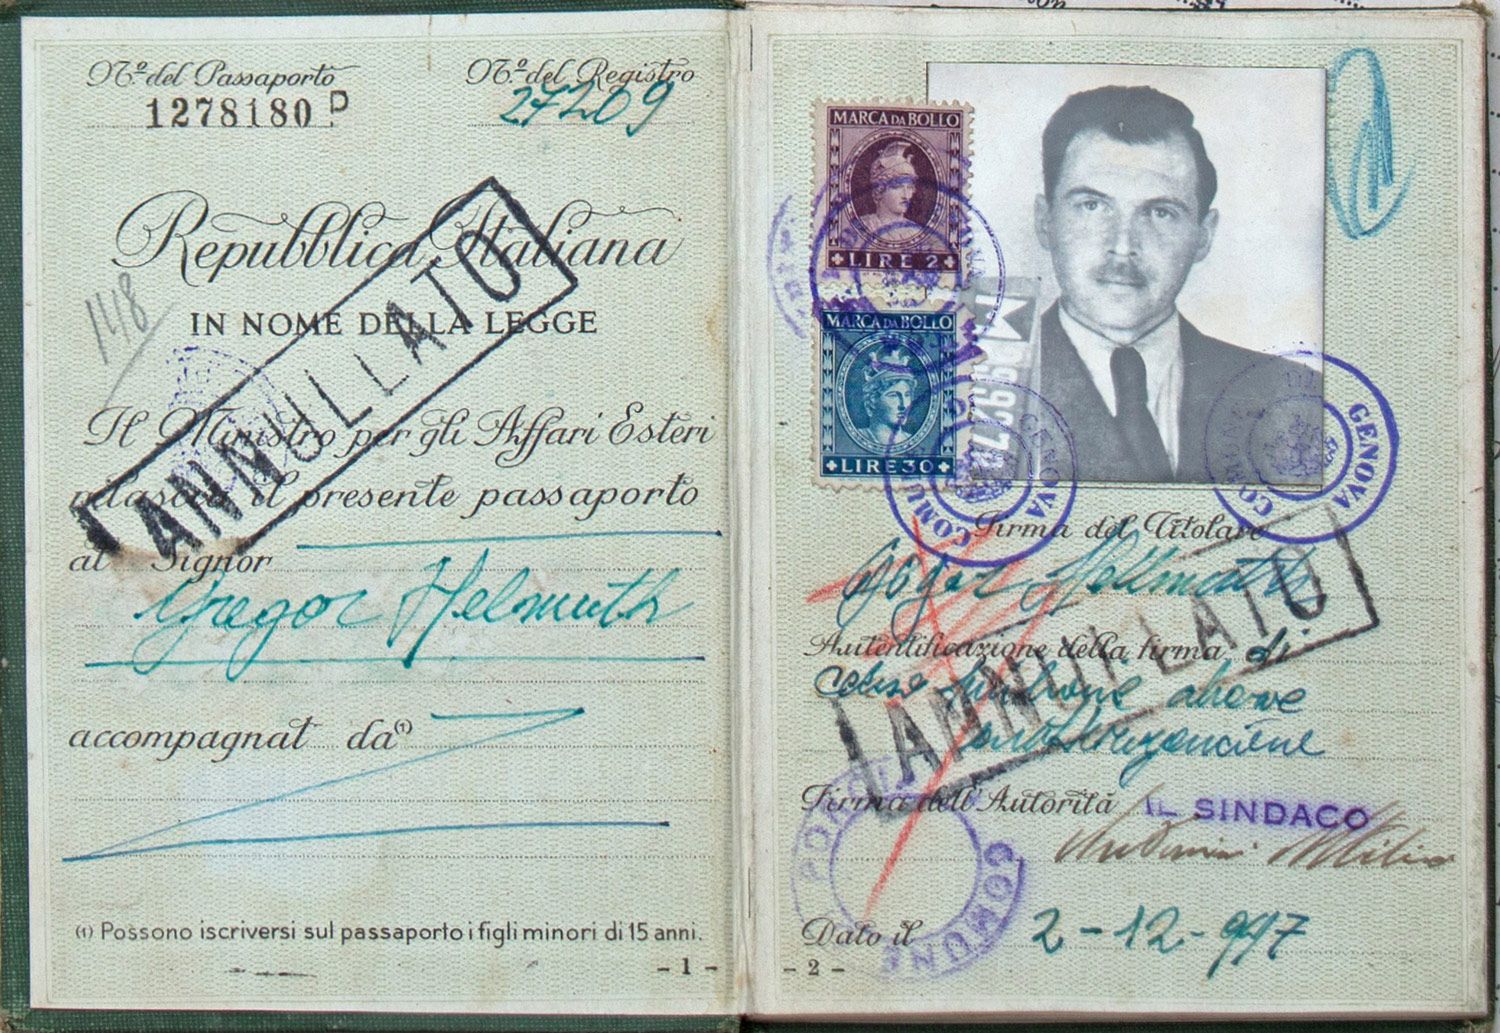 Nº del Passaporto
1278180 P
Nº del Registro
27209
Repubblica Italiana
IN NOME DELLA LEGGE
148
ANNULLATO
Il Ministro per gli Affari Esteri
rilascia il presente passaporto
al Signor
Gregor Helmuth
accompagnat da (1)
(1) Possono iscriversi sul passaporto i figli minori di 15 anni.
- 1 -
MARCA DA BOLLO
LIRE 2
MARCA DA BOLLO
LIRE 30
COMUNE GENOVA
COMUNE GENOVA
Firma del Titolare
Autentificazione della firma di
ANNULLATO
Firma dell'Autorità
IL SINDACO
COMUNE
Dato il
2-12-947
- 2 -